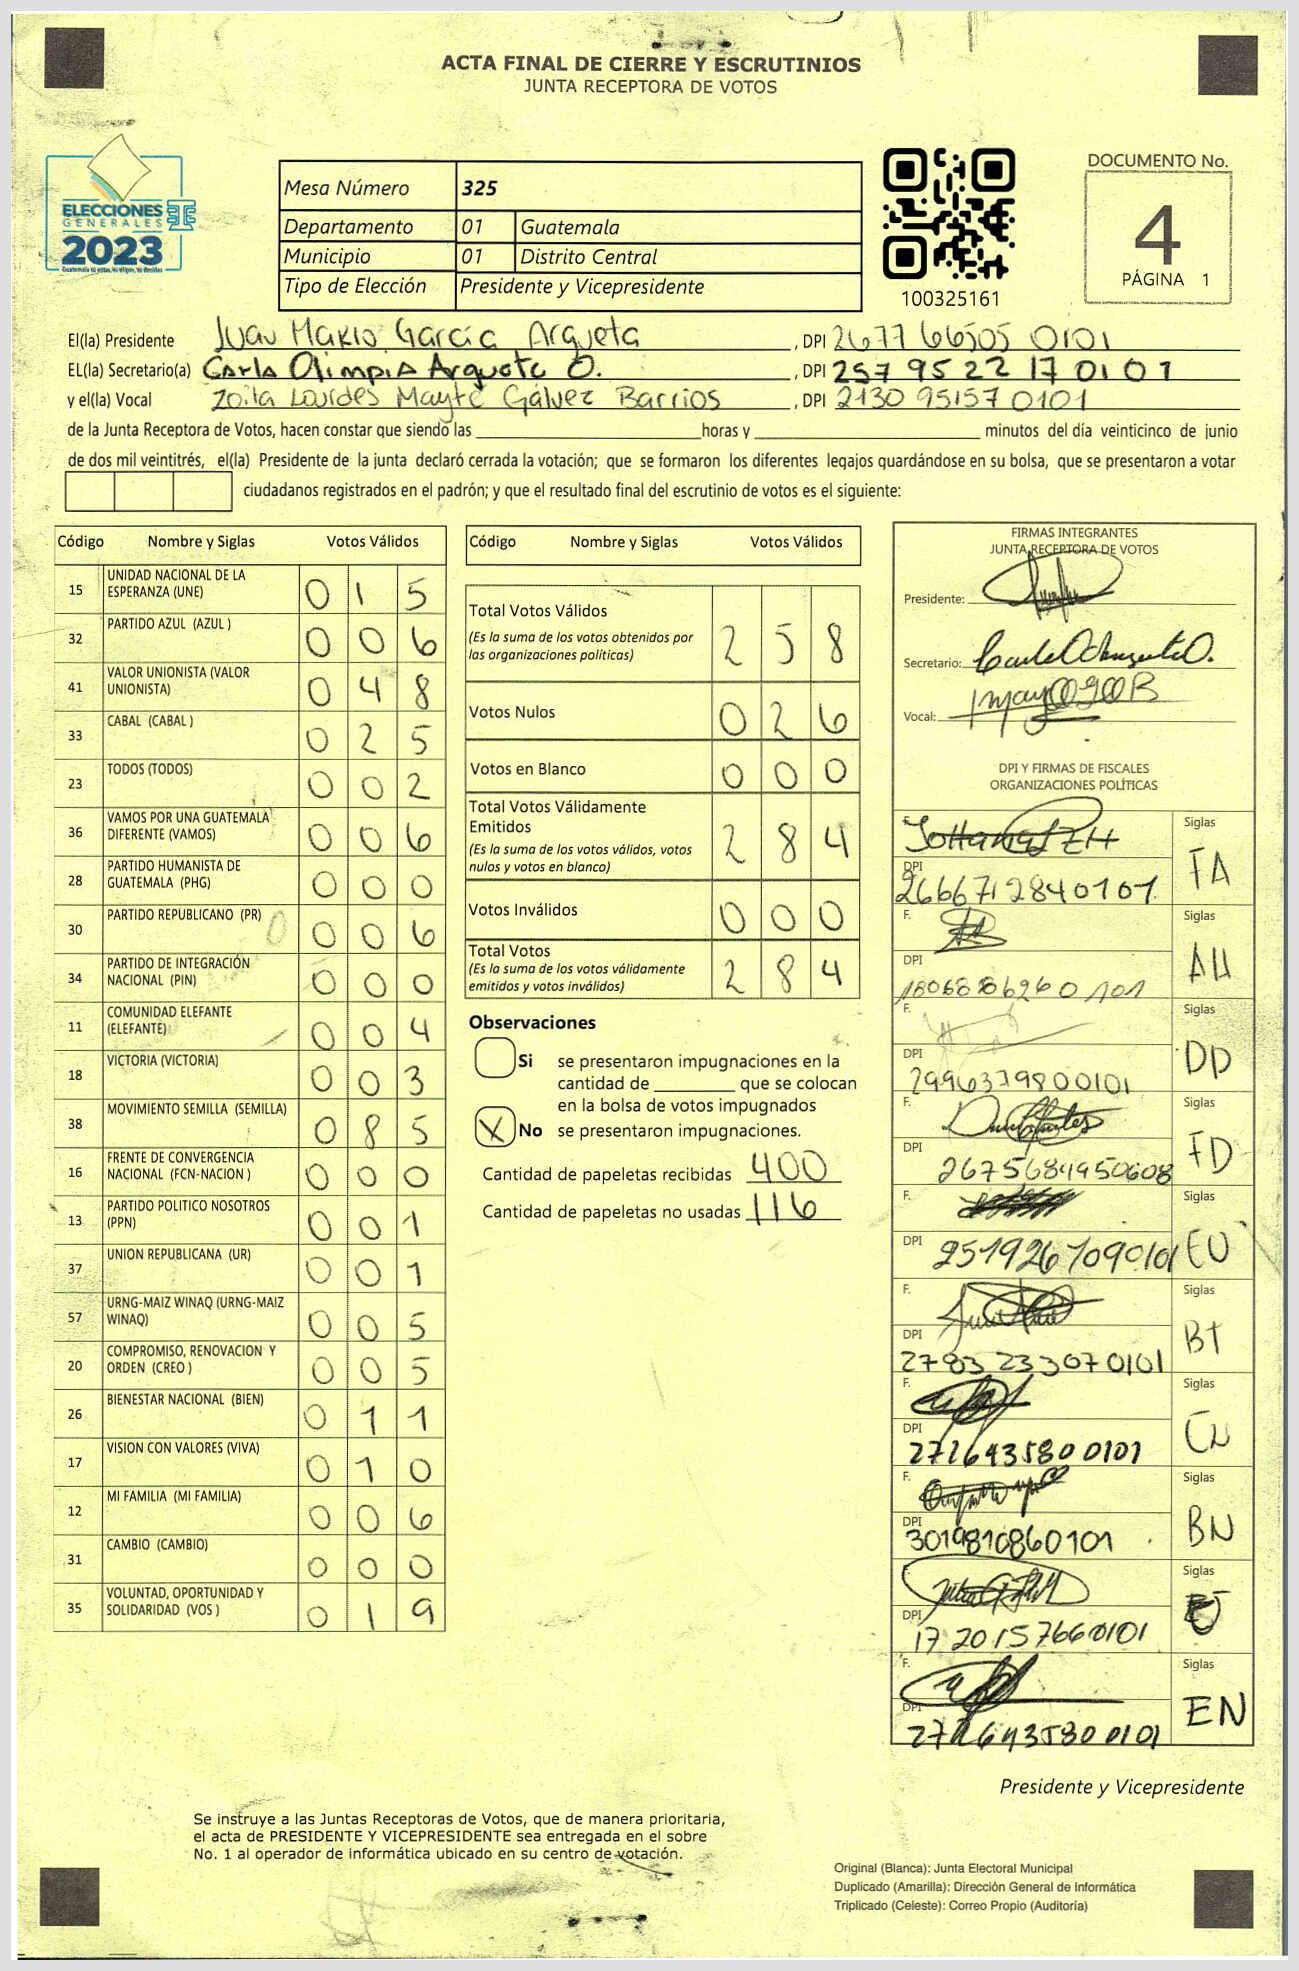 ACTA FINAL DE CIERRE Y ESCRUTINIOS
JUNTA RECEPTORA DE VOTOS
ELECCIONES
GENERALES
2023
Guatemala tú votas, tú eliges, tú decides
Mesa Número 325
Departamento 01 Guatemala
Municipio 01 Distrito Central
Tipo de Elección Presidente y Vicepresidente
100325161
DOCUMENTO No.
4
PÁGINA 1
El(la) Presidente Juan Mario García Argueta, DPI 2677 66505 0101
EL(la) Secretario(a) Carla Olimpia Argueta O., DPI 257 95 22 17 0101
y el(la) Vocal Zoila Lourdes Mayte Gálvez Barrios, DPI 2130 95157 0101
de la Junta Receptora de Votos, hacen constar que siendo las ____ horas y ____ minutos del día veinticinco de junio
de dos mil veintitrés, el(la) Presidente de la junta declaró cerrada la votación; que se formaron los diferentes legajos guardándose en su bolsa, que se presentaron a votar
ciudadanos registrados en el padrón; y que el resultado final del escrutinio de votos es el siguiente:
Código Nombre y Siglas Votos Válidos
15 UNIDAD NACIONAL DE LA ESPERANZA (UNE) 0 1 5
32 PARTIDO AZUL (AZUL ) 0 0 6
41 VALOR UNIONISTA (VALOR UNIONISTA) 0 4 8
33 CABAL (CABAL ) 0 2 5
23 TODOS (TODOS) 0 0 2
36 VAMOS POR UNA GUATEMALA DIFERENTE (VAMOS) 0 0 6
28 PARTIDO HUMANISTA DE GUATEMALA (PHG) 0 0 0
30 PARTIDO REPUBLICANO (PR) 0 0 6
34 PARTIDO DE INTEGRACIÓN NACIONAL (PIN) 0 0 0
11 COMUNIDAD ELEFANTE (ELEFANTE) 0 0 4
18 VICTORIA (VICTORIA) 0 0 3
38 MOVIMIENTO SEMILLA (SEMILLA) 0 8 5
16 FRENTE DE CONVERGENCIA NACIONAL (FCN-NACION ) 0 0 0
13 PARTIDO POLITICO NOSOTROS (PPN) 0 0 1
37 UNION REPUBLICANA (UR) 0 0 1
57 URNG-MAIZ WINAQ (URNG-MAIZ WINAQ) 0 0 5
20 COMPROMISO, RENOVACION Y ORDEN (CREO ) 0 0 5
26 BIENESTAR NACIONAL (BIEN) 0 1 1
17 VISION CON VALORES (VIVA) 0 1 0
12 MI FAMILIA (MI FAMILIA) 0 0 6
31 CAMBIO (CAMBIO) 0 0 0
35 VOLUNTAD, OPORTUNIDAD Y SOLIDARIDAD (VOS ) 0 1 9
Código Nombre y Siglas Votos Válidos
Total Votos Válidos 2 5 8
(Es la suma de los votos obtenidos por
las organizaciones políticas)
Votos Nulos 0 2 6
Votos en Blanco 0 0 0
Total Votos Válidamente
Emitidos 2 8 4
(Es la suma de los votos válidos, votos
nulos y votos en blanco)
Votos Inválidos 0 0 0
Total Votos 2 8 4
(Es la suma de los votos válidamente
emitidos y votos inválidos)
Observaciones
Si se presentaron impugnaciones en la
cantidad de ____ que se colocan
en la bolsa de votos impugnados
X No se presentaron impugnaciones.
Cantidad de papeletas recibidas 400
Cantidad de papeletas no usadas 116
FIRMAS INTEGRANTES
JUNTA RECEPTORA DE VOTOS
Presidente:
Secretario:
Vocal:
DPI Y FIRMAS DE FISCALES
ORGANIZACIONES POLÍTICAS
F. Siglas
DPI 2666712840101
F. Siglas AU
DPI 1806886260101
F. Siglas DD
DPI 2996379800101
F. Siglas FD
DPI 2675684950608
F. Siglas EU
DPI 2519267090101
F. Siglas BT
DPI 2783 233070101
F. Siglas
DPI 2726435800101
F. Siglas BN
DPI 3019810860101
F. Siglas
DPI 17 20157660101
F. Siglas EN
DPI 2726435800101
Presidente y Vicepresidente
Se instruye a las Juntas Receptoras de Votos, que de manera prioritaria,
el acta de PRESIDENTE Y VICEPRESIDENTE sea entregada en el sobre
No. 1 al operador de informática ubicado en su centro de votación.
Original (Blanca): Junta Electoral Municipal
Duplicado (Amarilla): Dirección General de Informática
Triplicado (Celeste): Correo Propio (Auditoría)